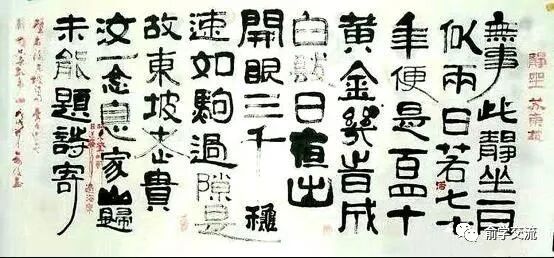 靜坐 苏東坡
無事此靜坐一日
似兩日若七十
活
年便是百四十
黄金幾旹成
白髮日夜出
開眼三千穐
速如駒過隙是
故東坡老貴
汝一念息家山歸
未能題詩寄
俞学交流